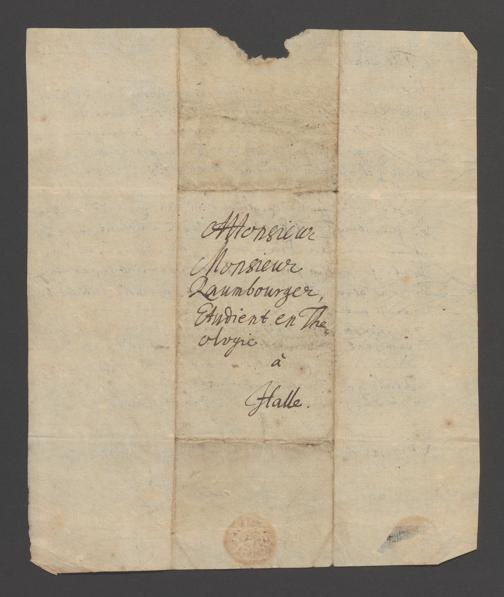 A Monsieur
Monsieur
Raumbourger,
Etudient en The„
ologie
à
Halle.